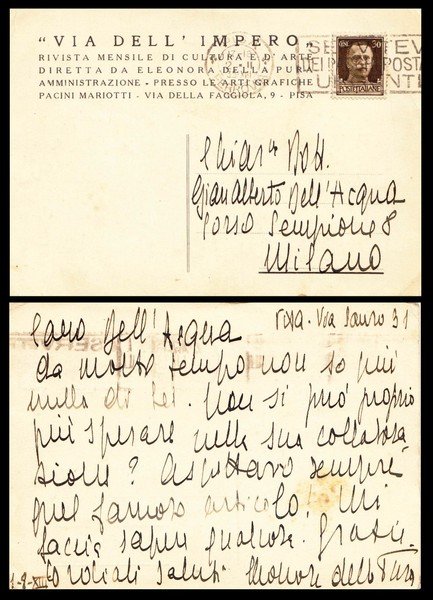 "VIA DELL' IMPERO
RIVISTA MENSILE DI CULTURA E D'ARTE
DIRETTA DA ELEONORA DELLA PURA
AMMINISTRAZIONE - PRESSO LE ARTI GRAFICHE
PACINI MARIOTTI - VIA DELLA FAGGIOLA, 9 - PISA
CENT. 30
POSTE ITALIANE
Chiar.mo Dott.
Gian Alberto Dell'Acqua
Corso Sempione 8
Milano
Pisa - Via Sauro 31
Caro Dell'Acqua
da molto tempo non so più
nulla di Lei. Non si può proprio
più sperare nella sua collabora
zione? Aspettavo sempre
quel famoso articolo! Mi
faccia sapere qualcosa. Grazie
Cordiali saluti Eleonora della Pura